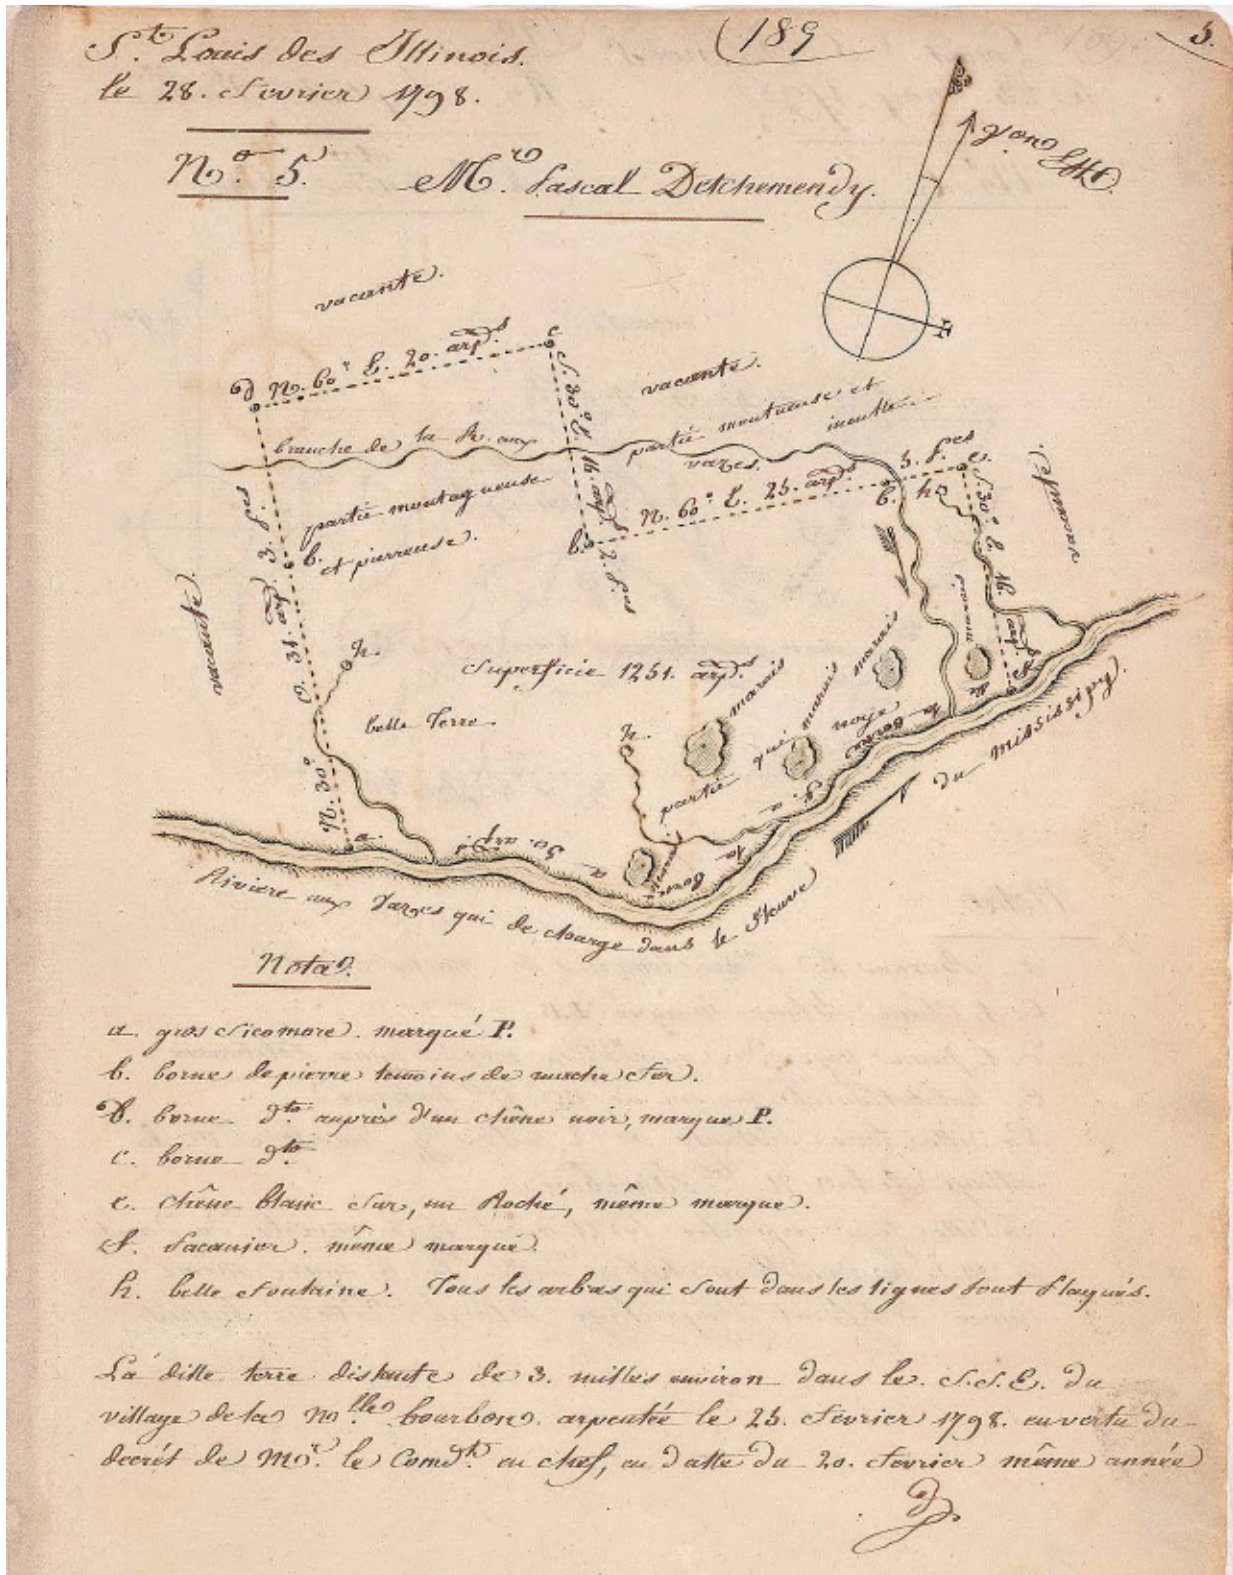 St. Louis des Illinois.
le 28. fevrier 1798.
189
5.
No. 5.
Mr. Pascal Detchemendy.
vacante.
d N. 60° E. 20. arpds c
S. 30° E. 16. arpds 2. p.es
vacante.
partie montueuse et
inculte.
branche de la R. aux
vazes.
N. 60° E. 25. arpds 3. p.es e.
b.
b.
h
vacante
partie montagneuse
et pierreuse.
b.
vacante
N. 30° O. 31. arp. 3. pes
S. 30° E. 16. arpds
h.
Superficie 1251. arpds
belle Terre
h.
marais
marais
marais
marais
marais
partie qui noye
a.
50. arps
a
la
borne
f. a
la
borne
de
du mississipy.
Riviere aux Vazes qui de charge dans le fleuve
Nota.
a. gros Sicomore. marqué P.
b. borne de pierre temoins de mache fer.
d. borne dto. auprès d'un chêne noir, marque P.
c. borne dto.
e. chêne blanc sur, un Roché, même marque.
f. Pacanier. même marque.
h. belle fontaine. Tous les arbres qui sont dans les lignes sont plaqués.
La ditte terre distante de 3. milles environ dans le. S.S.E. du
village de la Nlle bourbon. arpentée le 25. fevrier 1798. en vertu du
decrét de Mr. le Comdt. en chef, en datte du 20. fevrier même année